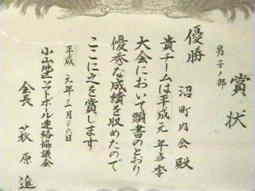 男子ノ部
賞状
優勝
沼町内会殿
貴チームは平成元年冬季
大会において頭書のとおり
優秀な成績を収めたので
ここに之を賞します
平成 元年 月 六日
小山地区ソフトボール連絡協議会
会長 萩原 進